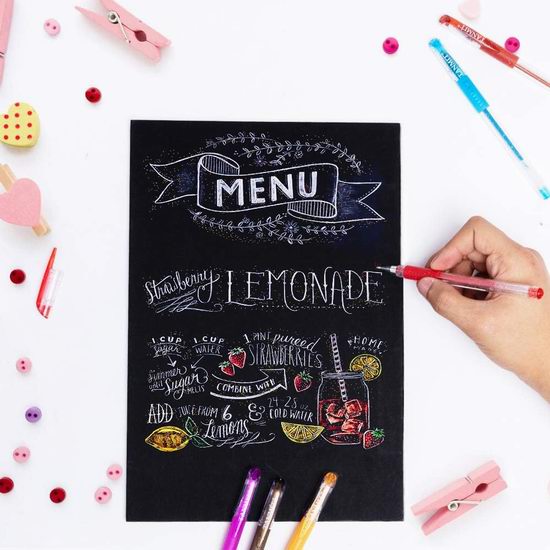 MENU
Strawberry LEMONADE
1 CUP Sugar
1 CUP WATER
Simmer until Sugar MELTS
COMBINE WITH
1 PINT pureed
STRAWBERRIES
HOME MADE
ADD JUICE FROM 6
Lemons
&
COLD WATER
TANMIT